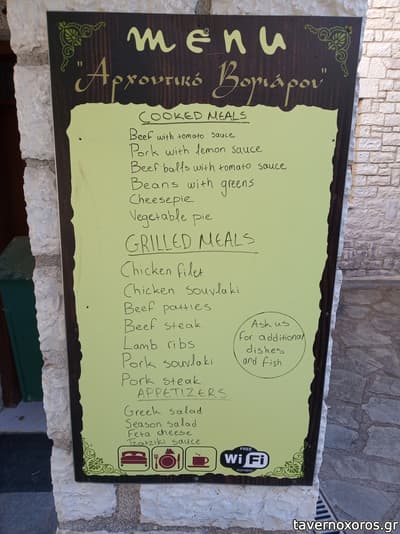 menu
"Αρχοντικό Βοριάρου"
COOKED MEALS
Beef with tomato sauce
Pork with lemon sauce
Beef balls with tomato sauce
Beans with greens
Cheesepie
Vegetable pie
GRILLED MEALS
Chicken filet
Chicken souvlaki
Beef patties
Beef steak
Lamb ribs
Pork souvlaki
Pork steak
Ask us
for additional
dishes
and fish
APPETIZERS
Greek salad
Season salad
Feta cheese
Tzatziki sauce
FREE
WiFi
tavernoxoros.gr